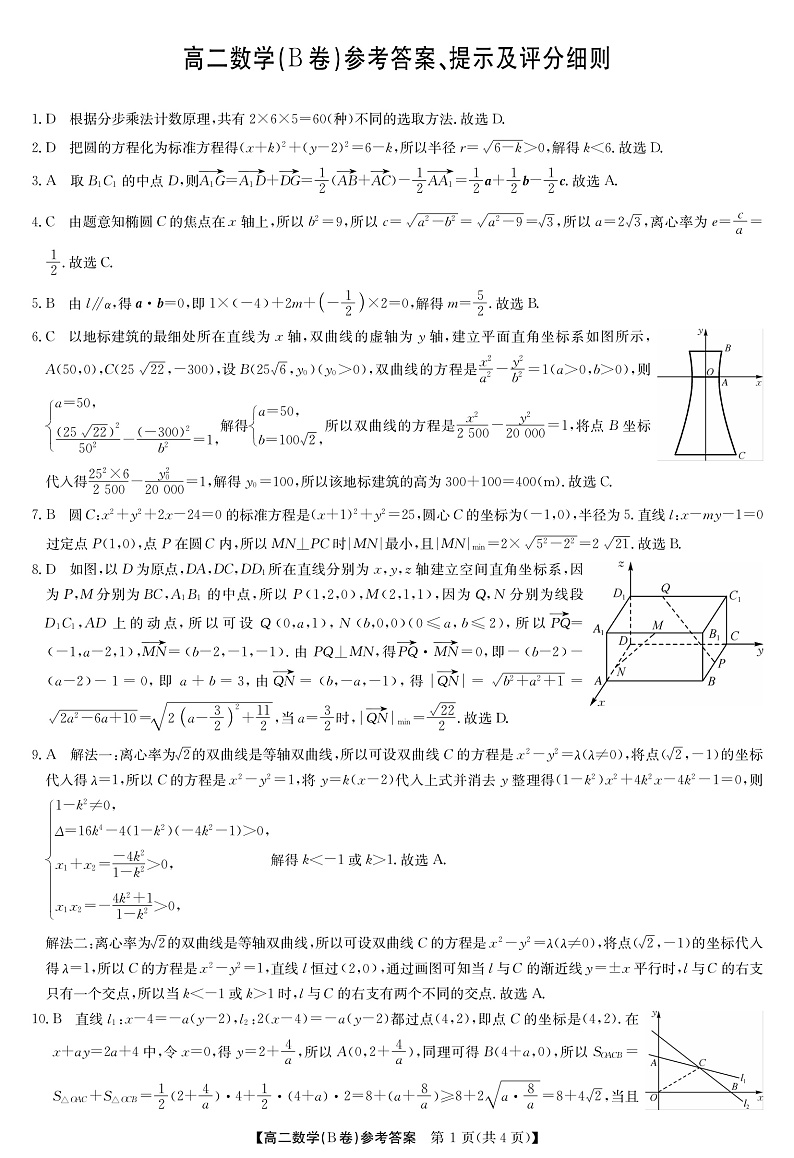 高二数学(B卷)参考答案、提示及评分细则
1. D 根据分步乘法计数原理,共有 2×6×5=60(种)不同的选取方法. 故选 D.
2. D 把圆的方程化为标准方程得(x+k)²+(y-2)²=6-k,所以半径 r=√(6-k)>0,解得 k<6. 故选 D.
3. A 取 B₁C₁ 的中点 D,则\overrightarrow{A₁G}=\overrightarrow{A₁D}+\overrightarrow{DG}=1/2(\overrightarrow{AB}+\overrightarrow{AC})-1/2\overrightarrow{AA₁}=1/2a+1/2b-1/2c. 故选 A.
4. C 由题意知椭圆 C 的焦点在 x 轴上,所以 b²=9,所以 c=√(a²-b²)=√(a²-9)=√3,所以 a=2√3,离心率为 e=c/a=
1/2. 故选 C.
5. B 由 l∥α,得 a·b=0,即 1×(-4)+2m+(-1/2)×2=0,解得 m=5/2. 故选 B.
6. C 以地标建筑的最细处所在直线为 x 轴,双曲线的虚轴为 y 轴,建立平面直角坐标系如图所示,
A(50,0),C(25√22,-300),设 B(25√6,y₀)(y₀>0),双曲线的方程是x²/a²-y²/b²=1(a>0,b>0),则
{a=50, (25√22)²/50²-(-300)²/b²=1, 解得{a=50, b=100√2, 所以双曲线的方程是x²/2 500-y²/20 000=1,将点 B 坐标
代入得25²×6/2 500-y₀²/20 000=1,解得 y₀=100,所以该地标建筑的高为 300+100=400(m). 故选 C.
y
B
O
A
x
C
7. B 圆 C:x²+y²+2x-24=0 的标准方程是(x+1)²+y²=25,圆心 C 的坐标为(-1,0),半径为 5. 直线 l:x-my-1=0
过定点 P(1,0),点 P 在圆 C 内,所以 MN⊥PC 时|MN|最小,且|MN|min=2×√(5²-2²)=2√21. 故选 B.
8. D 如图,以 D 为原点,DA,DC,DD₁ 所在直线分别为 x,y,z 轴建立空间直角坐标系,因
为 P,M 分别为 BC,A₁B₁ 的中点,所以 P(1,2,0),M(2,1,1),因为 Q,N 分别为线段
D₁C₁,AD 上的动点,所以可设 Q(0,a,1),N(b,0,0)(0≤a,b≤2),所以\overrightarrow{PQ}=
(-1,a-2,1),\overrightarrow{MN}=(b-2,-1,-1). 由 PQ⊥MN,得\overrightarrow{PQ}·\overrightarrow{MN}=0,即-(b-2)-
(a-2)-1=0,即 a+b=3,由\overrightarrow{QN}=(b,-a,-1),得|\overrightarrow{QN}|=√(b²+a²+1)=
√(2a²-6a+10)=√(2(a-3/2)²+11/2),当 a=3/2时,|\overrightarrow{QN}|min=√22/2. 故选 D.
z
D₁
Q
C₁
A₁
M
B₁
D
C
y
N
P
A
B
x
9. A 解法一:离心率为√2的双曲线是等轴双曲线,所以可设双曲线 C 的方程是 x²-y²=λ(λ≠0),将点(√2,-1)的坐标
代入得 λ=1,所以 C 的方程是 x²-y²=1,将 y=k(x-2)代入上式并消去 y 整理得(1-k²)x²+4k²x-4k²-1=0,则
{1-k²≠0,
Δ=16k⁴-4(1-k²)(-4k²-1)>0,
x₁+x₂=-4k²/(1-k²)>0, 解得 k<-1 或 k>1. 故选 A.
x₁x₂=-(4k²+1)/(1-k²)>0,
解法二:离心率为√2的双曲线是等轴双曲线,所以可设双曲线 C 的方程是 x²-y²=λ(λ≠0),将点(√2,-1)的坐标代入
得 λ=1,所以 C 的方程是 x²-y²=1,直线 l 恒过(2,0),通过画图可知当 l 与 C 的渐近线 y=±x 平行时,l 与 C 的右支
只有一个交点,所以当 k<-1 或 k>1 时,l 与 C 的右支有两个不同的交点. 故选 A.
10. B 直线 l₁:x-4=-a(y-2),l₂:2(x-4)=-a(y-2)都过点(4,2),即点 C 的坐标是(4,2). 在
x+ay=2a+4 中,令 x=0,得 y=2+4/a,所以 A(0,2+4/a),同理可得 B(4+a,0),所以 S_{OACB}=
S_{△OAC}+S_{△OCB}=1/2(2+4/a)·4+1/2·(4+a)·2=8+(a+8/a)≥8+2√(a·8/a)=8+4√2,当且
y
A
C
l₁
O
B
x
l₂
【高二数学(B卷)参考答案 第 1 页(共 4 页)】